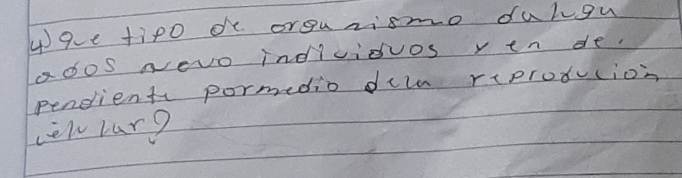 4) que tipo de organismo da lugu
a dos nevo individuos y en de.
pendiente pormedio dela reproducion
celular?